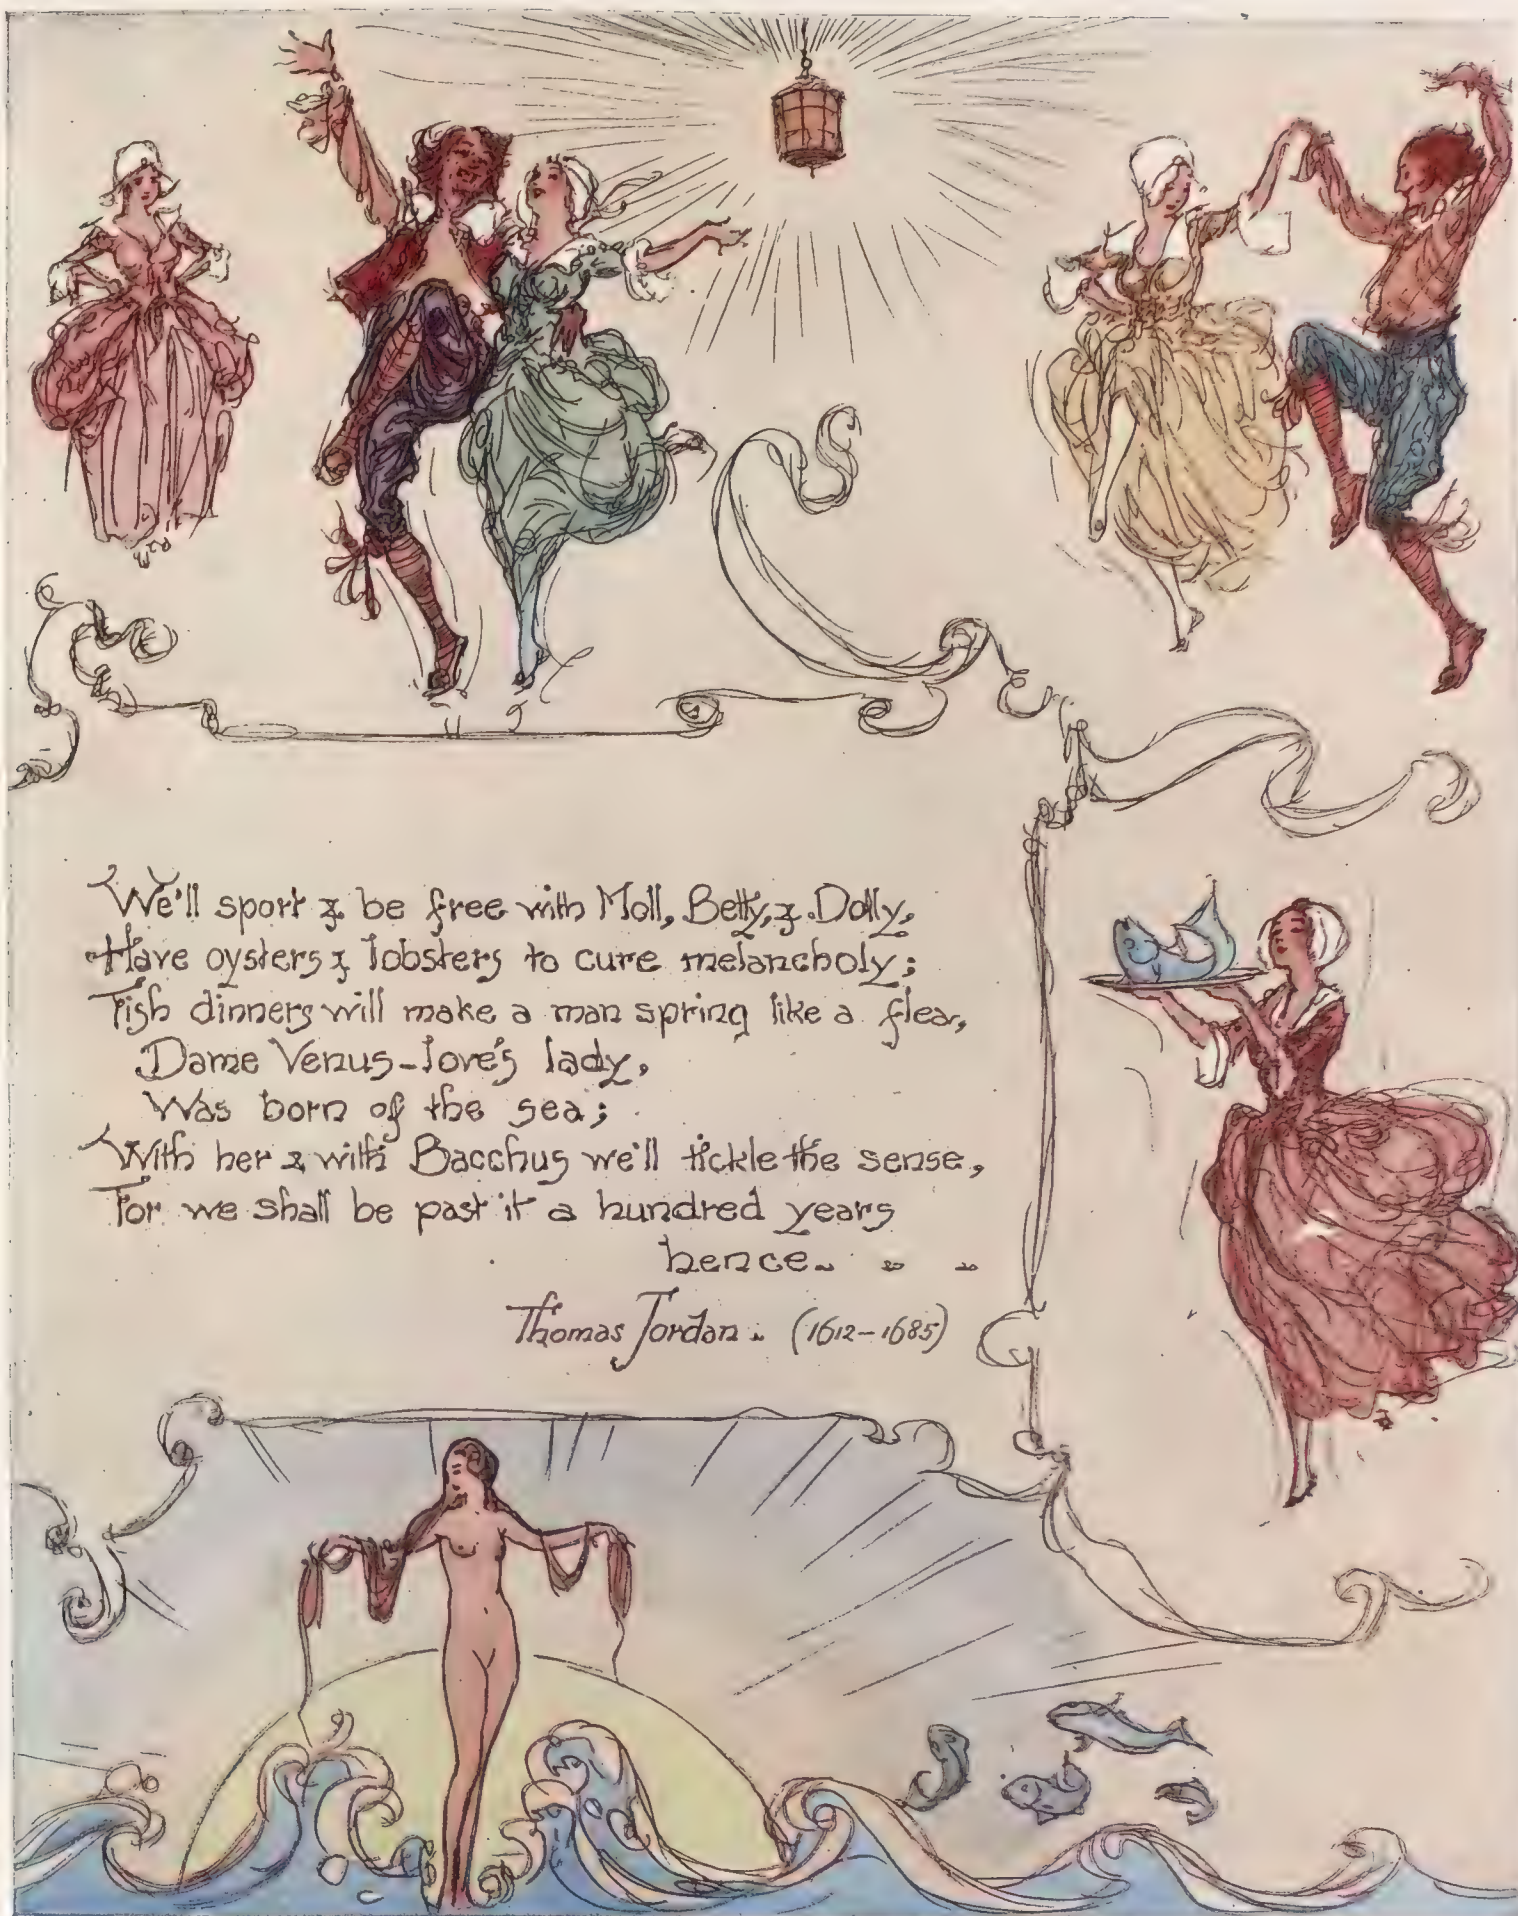 We'll sport & be free with Moll, Betty, & Dolly,
Have oysters & lobsters to cure melancholy;
Fish dinners will make a man spring like a flea,
Dame Venus-love's lady,
Was born of the sea;
With her & with Bacchus we'll tickle the sense,
For we shall be past it a hundred years
hence.
Thomas Jordan. (1612-1685)